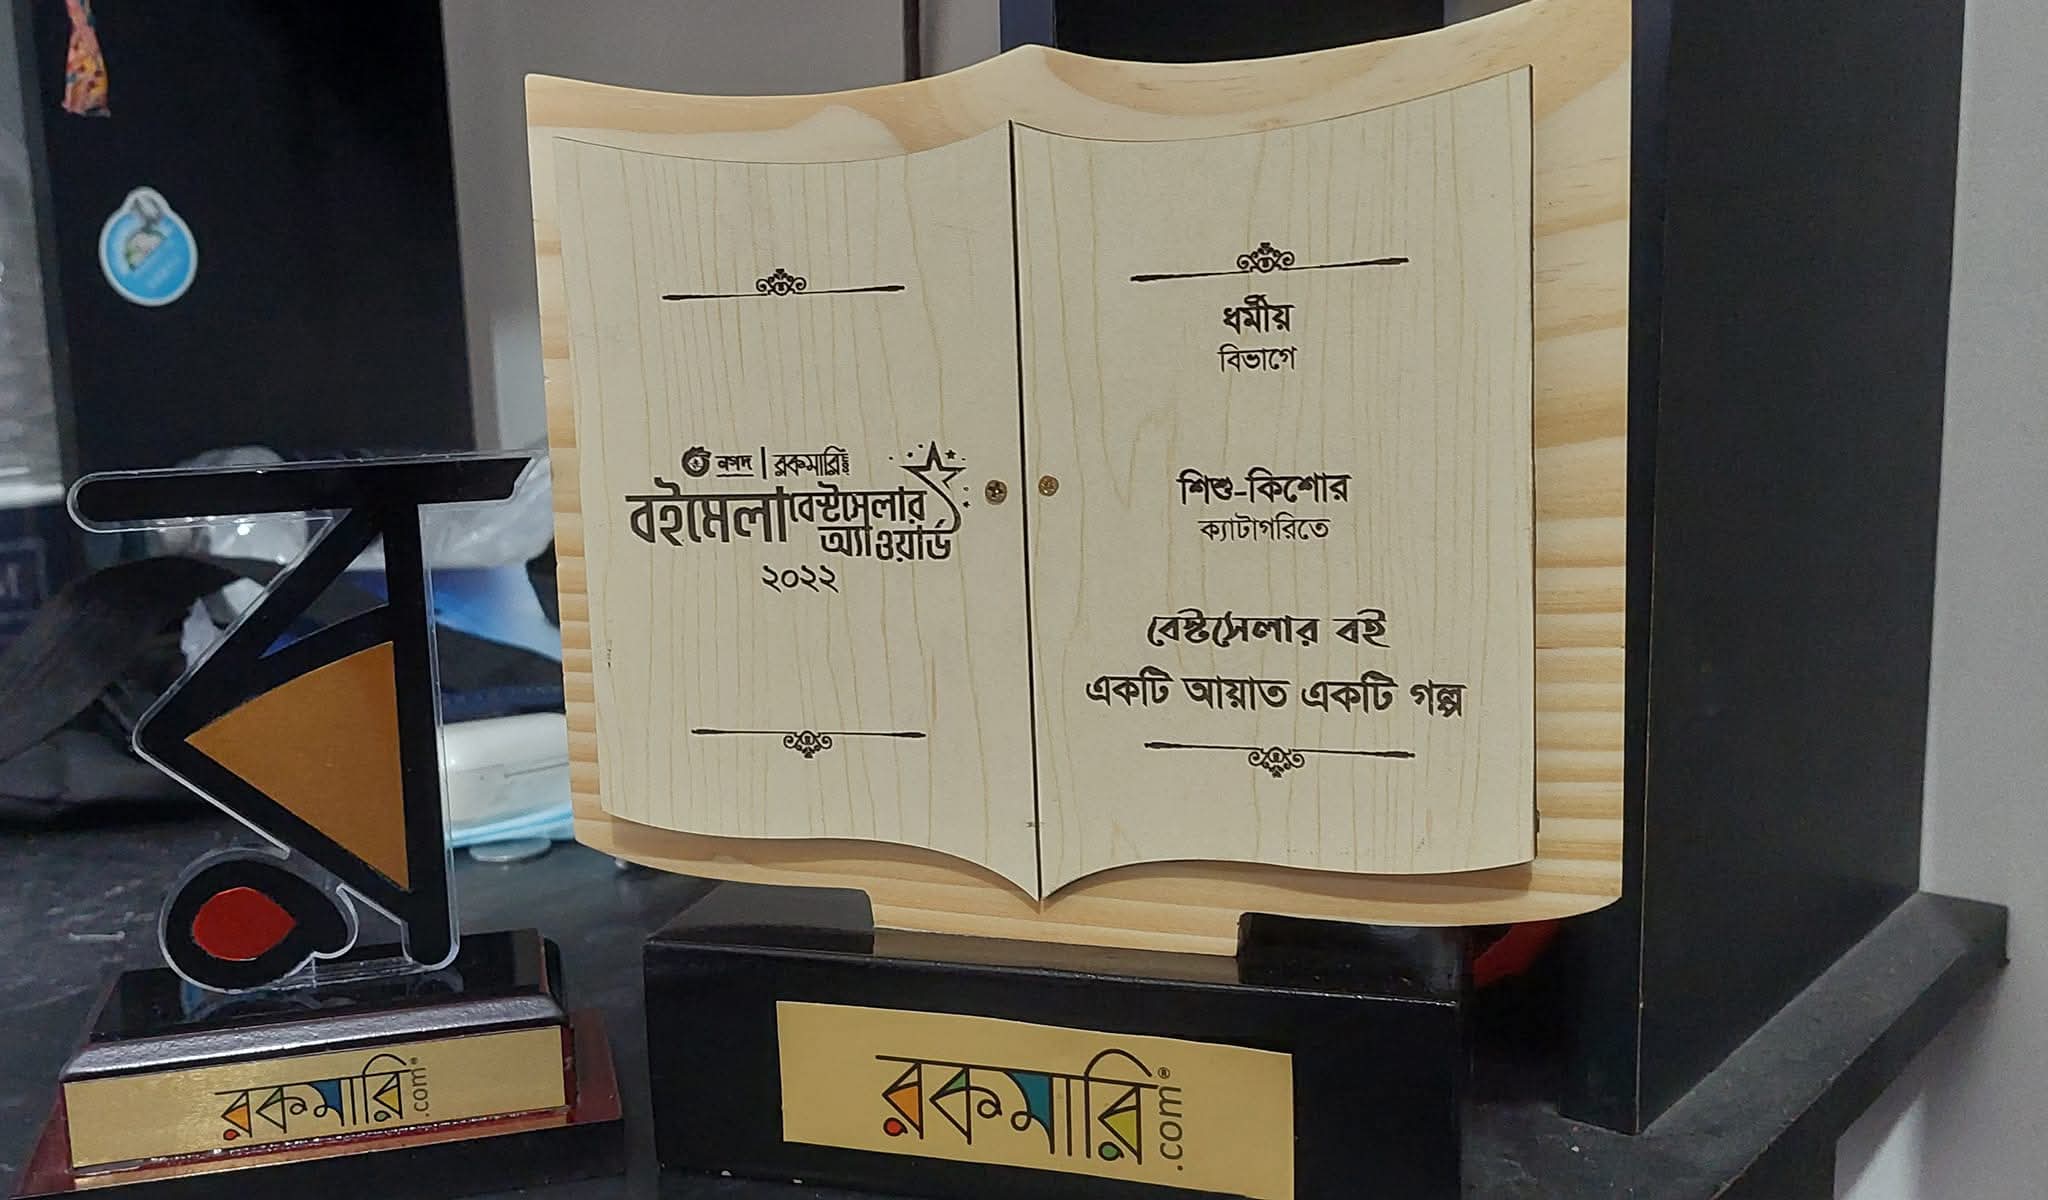 নগদ | রকমারি.com
বইমেলা বেস্টসেলার
অ্যাওয়ার্ড
২০২২
ধর্মীয়
বিভাগে
শিশু-কিশোর
ক্যাটাগরিতে
বেস্টসেলার বই
একটি আয়াত একটি গল্প
র
রকমারি.com®
রকমারি.com®